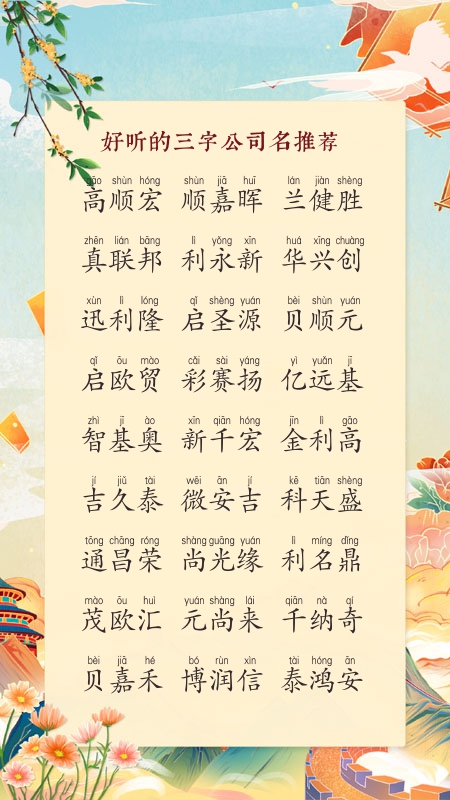 好听的三字公司名推荐
gāo shùn hóng shùn jiā huī lán jiàn shèng
高顺宏 顺嘉晖 兰健胜
zhēn lián bāng lì yǒng xīn huá xīng chuàng
真联邦 利永新 华兴创
xùn lì lóng qǐ shèng yuán bèi shùn yuán
迅利隆 启圣源 贝顺元
qǐ ōu mào cǎi sài yáng yì yuǎn jī
启欧贸 彩赛扬 亿远基
zhì jī ào xīn qiān hóng jīn lì gāo
智基奥 新千宏 金利高
jí jiǔ tài wēi ān jí kē tiān shèng
吉久泰 微安吉 科天盛
tōng chāng róng shàng guāng yuán lì míng dǐng
通昌荣 尚光缘 利名鼎
mào ōu huì yuán shàng lái qiān nà qí
茂欧汇 元尚来 千纳奇
bèi jiā hé bó rùn xìn tài hóng ān
贝嘉禾 博润信 泰鸿安